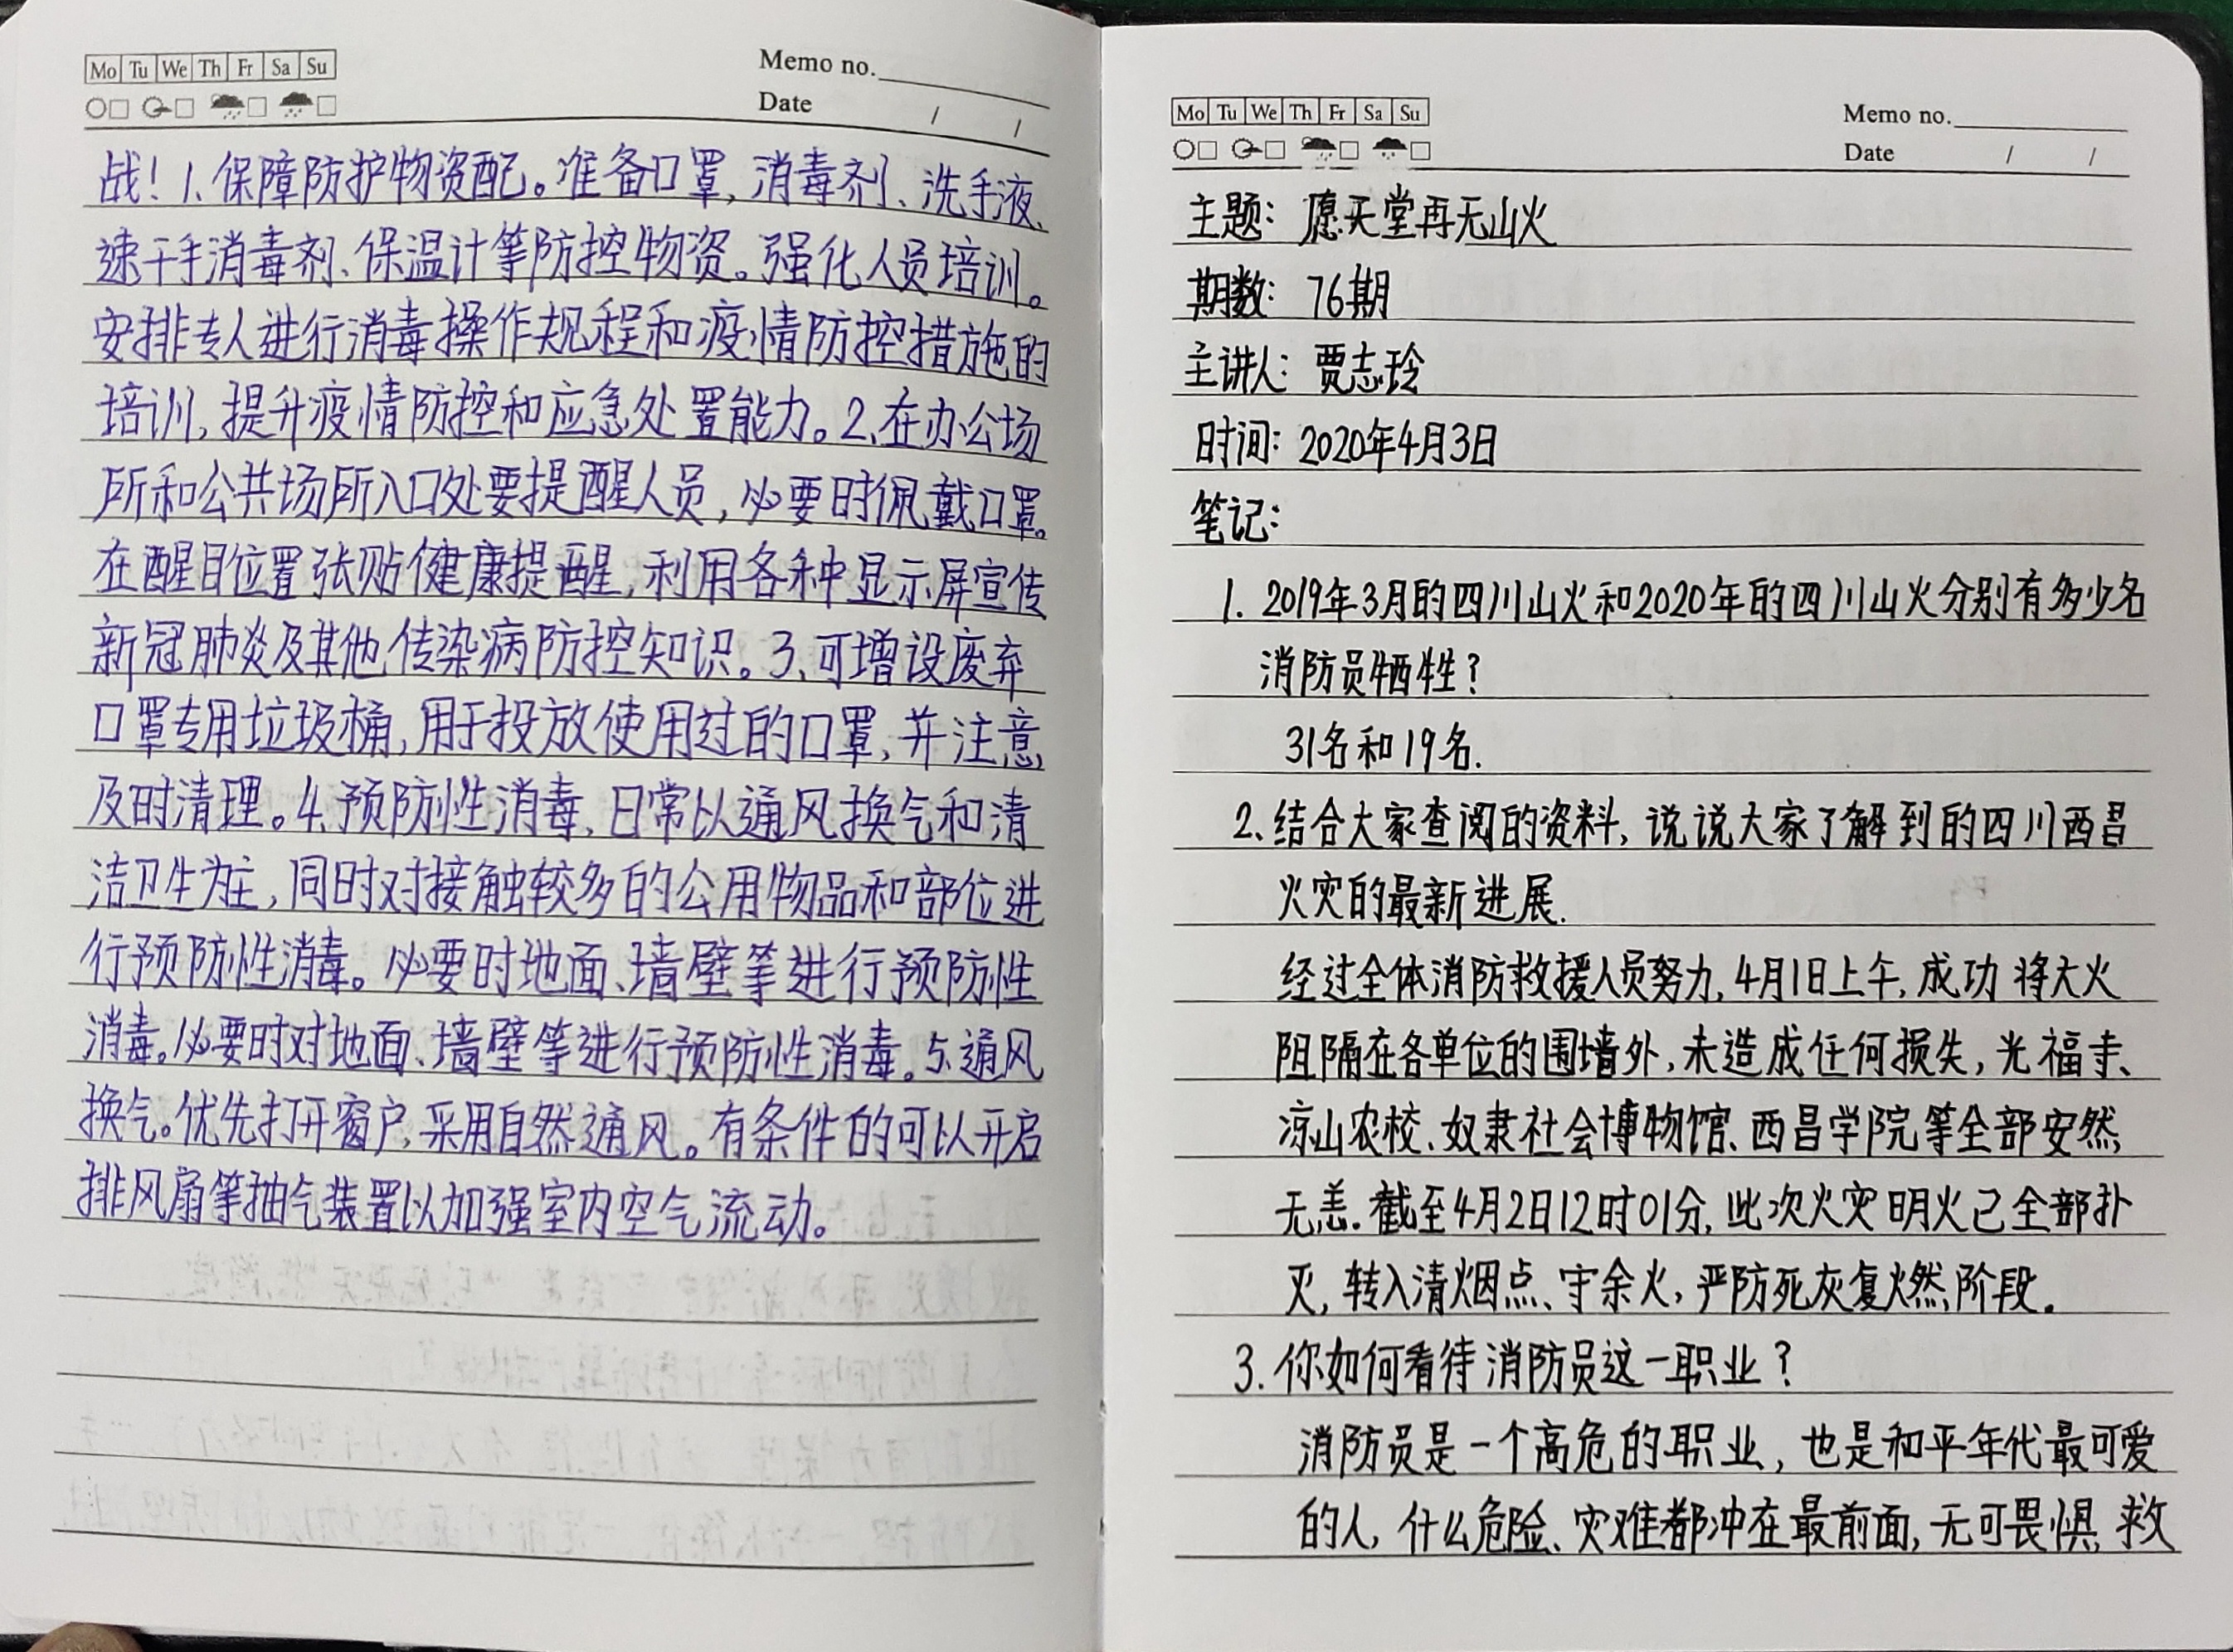 Mo Tu We Th Fr Sa Su
Memo no.
Date / /
战！1、保障防护物资配。准备口罩，消毒剂、洗手液、
速干手消毒剂、保温计等防控物资。强化人员培训。
安排专人进行消毒操作规程和疫情防控措施的
培训，提升疫情防控和应急处置能力。2、在办公场
所和公共场所入口处要提醒人员，必要时佩戴口罩。
在醒目位置张贴健康提醒，利用各种显示屏宣传
新冠肺炎及其他传染病防控知识。3、可增设废弃
口罩专用垃圾桶，用于投放使用过的口罩，并注意
及时清理。4、预防性消毒，日常以通风换气和清
洁卫生为主，同时对接触较多的公用物品和部位进
行预防性消毒。必要时地面、墙壁等进行预防性
消毒。必要时对地面、墙壁等进行预防性消毒。5、通风
换气。优先打开窗户，采用自然通风。有条件的可以开启
排风扇等抽气装置以加强室内空气流动。
Mo Tu We Th Fr Sa Su
Memo no.
Date / /
主题：愿天堂再无山火
期数：76期
主讲人：贾志玲
时间：2020年4月3日
笔记：
1. 2019年3月的四川山火和2020年的四川山火分别有多少名
消防员牺牲？
31名和19名.
2. 结合大家查阅的资料，说说大家了解到的四川西昌
火灾的最新进展.
经过全体消防救援人员努力，4月1日上午，成功将大火
阻隔在各单位的围墙外，未造成任何损失，光福寺、
凉山农校、奴隶社会博物馆、西昌学院等全部安然
无恙.截至4月2日12时01分，此次火灾明火已全部扑
灭，转入清烟点、守余火，严防死灰复燃阶段.
3. 你如何看待消防员这一职业？
消防员是一个高危的职业，也是和平年代最可爱
的人，什么危险、灾难都冲在最前面，无可畏惧，救